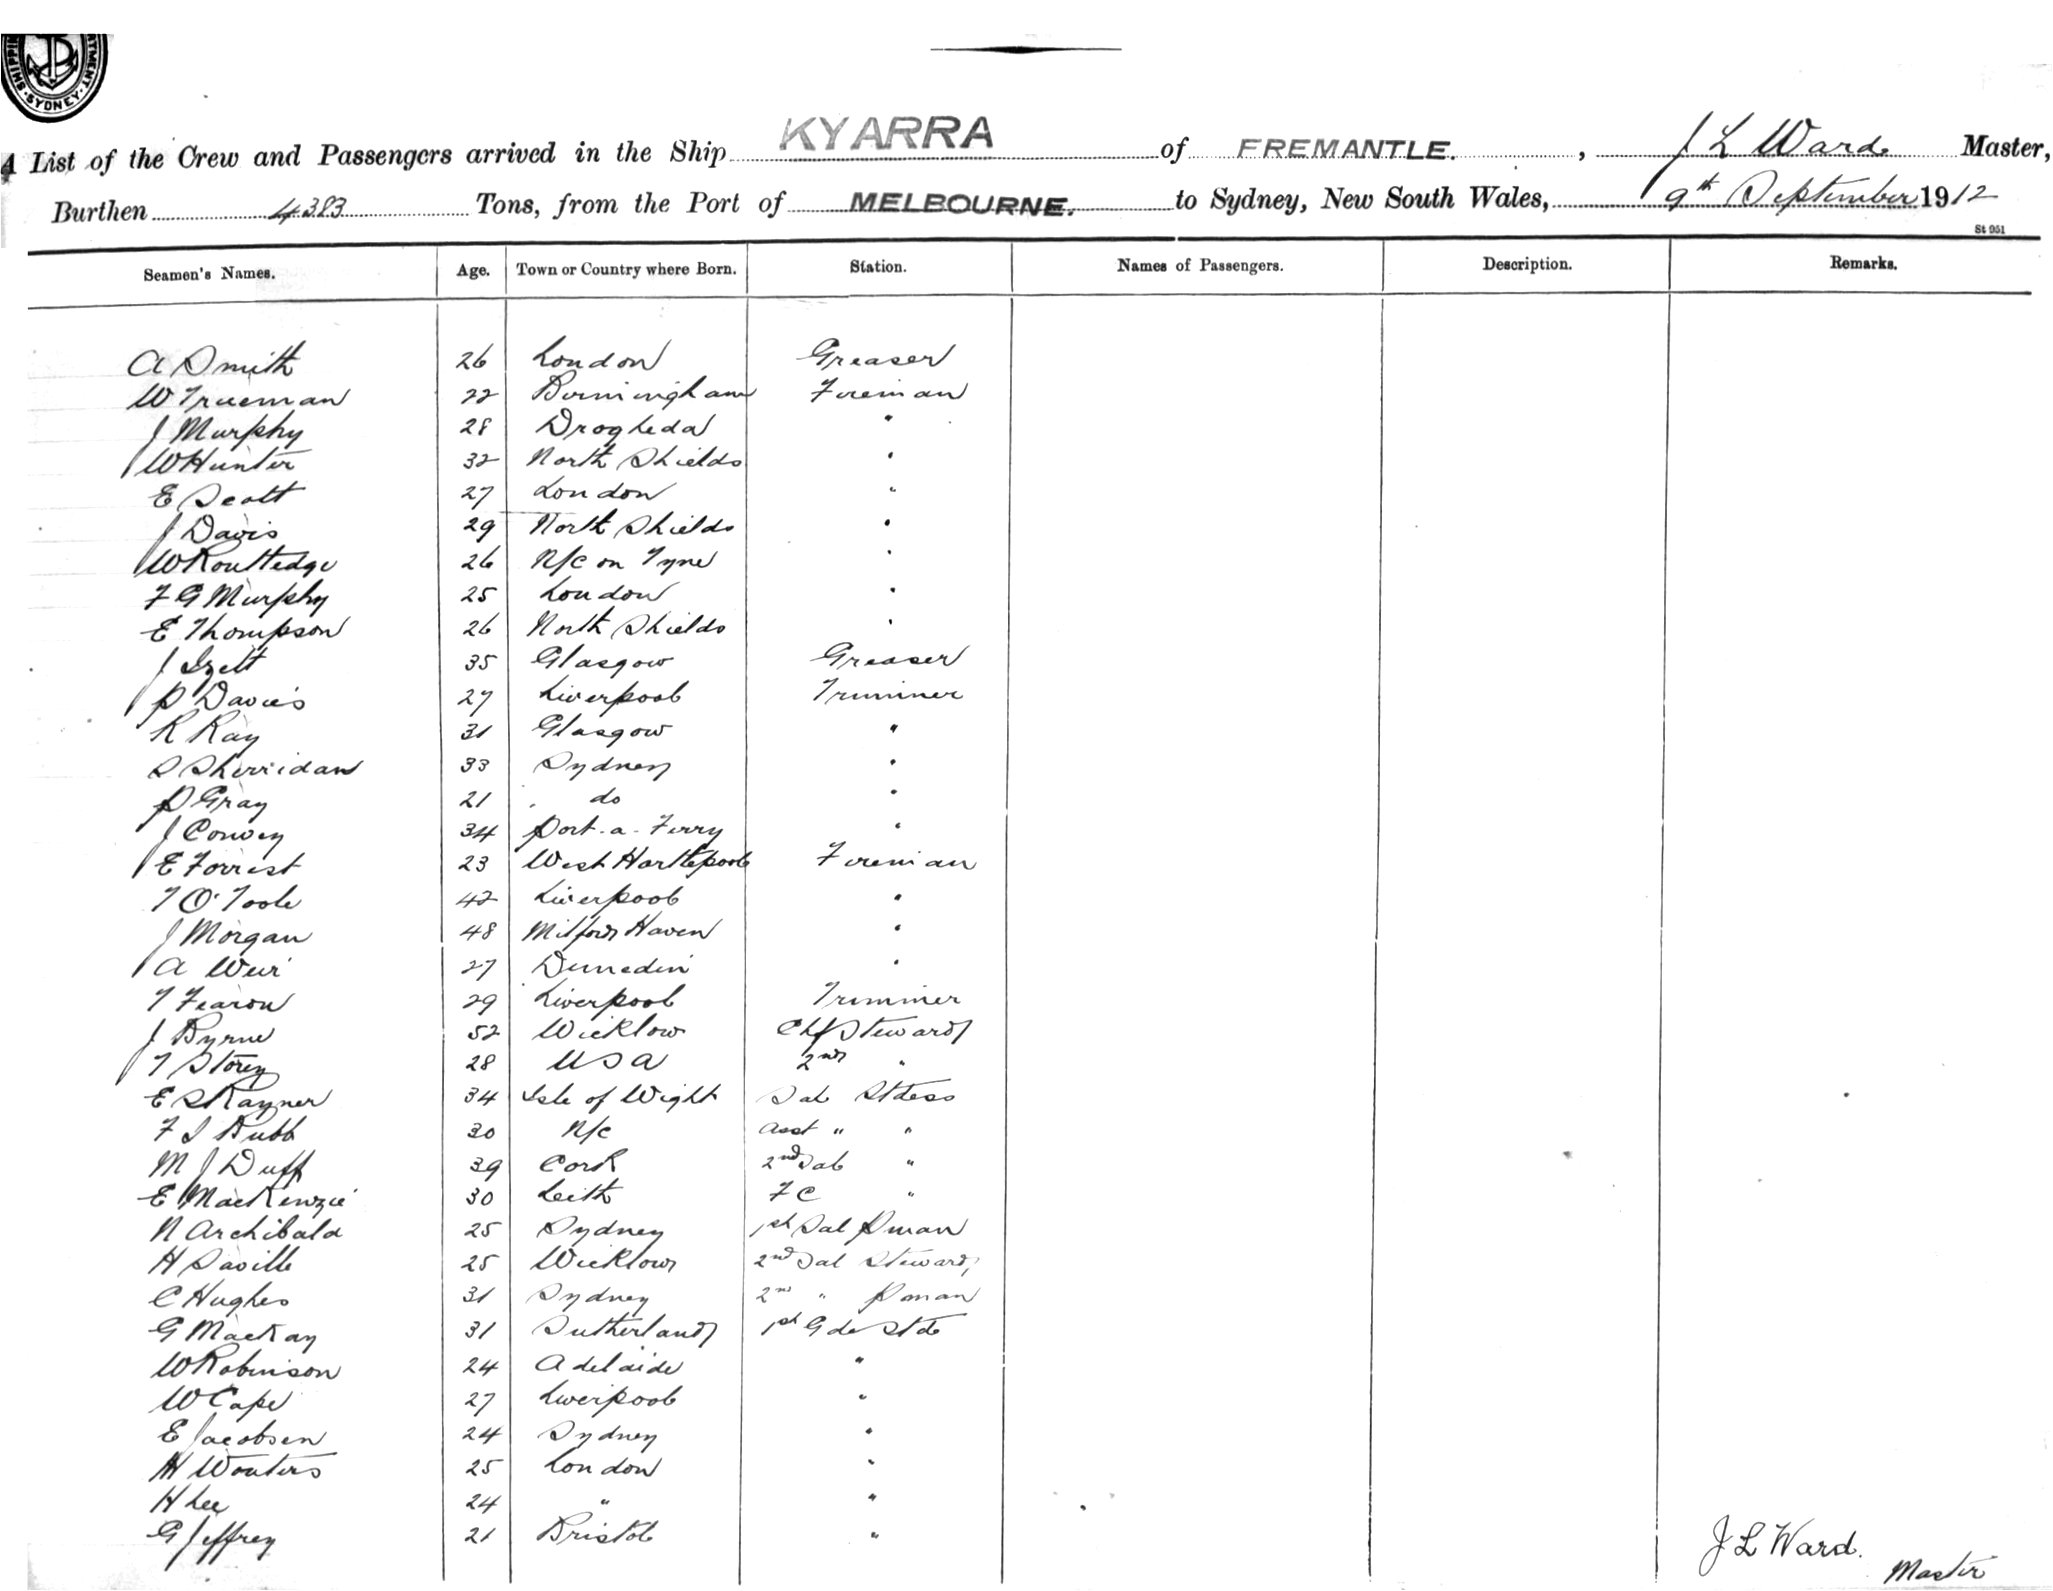 SYDNEY
A List of the Crew and Passengers arrived in the Ship KYARRA of FREMANTLE. , J L Ward Master,
Burthen 4383 Tons, from the Port of MELBOURNE. to Sydney, New South Wales, 9th September 1912
St 951
Seamen's Names. Age. Town or Country where Born. Station. Names of Passengers. Description. Remarks.
A Smith 26 London Greaser
W Trueman 22 Birmingham Fireman
J Murphy 28 Drogheda "
W Hunter 32 North Shields "
E Scott 27 London "
J Davis 29 North Shields "
W Routledge 26 N/c on Tyne "
F G Murphy 25 London "
E Thompson 26 North Shields "
J Izett 35 Glasgow Greaser
P Davies 27 Liverpool Trimmer
R Ray 31 Glasgow "
S Sherridan 33 Sydney "
P Gray 21 do "
J Convey 34 Port-a-Ferry "
E Forrest 23 West Hartlepool Fireman
T O'Toole 42 Liverpool "
J Morgan 48 Milford Haven "
A Weir 27 Dunedin "
T Fearon 29 Liverpool Trimmer
J Byrne 52 Wicklow Chf Steward
T Storey 28 U S A 2nd "
E S Rayner 34 Isle of Wight Sal Stdess
F I Bubb 30 N/c Asst " "
M J Duff 39 Cork 2nd Sal "
E MacKenzie 30 Leith F C "
N Archibald 25 Sydney 1st Sal Pman
H Saville 25 Wicklow 2nd Sal Steward
C Hughes 31 Sydney 2nd " Pman
G MacKay 31 Sutherland 1st Gde Std
W Robinson 24 Adelaide "
W Cape 27 Liverpool "
E Jacobsen 24 Sydney "
H Wouters 25 London "
H Lee 24 " "
G Jeffrey 21 Bristol "
J L Ward.
Master